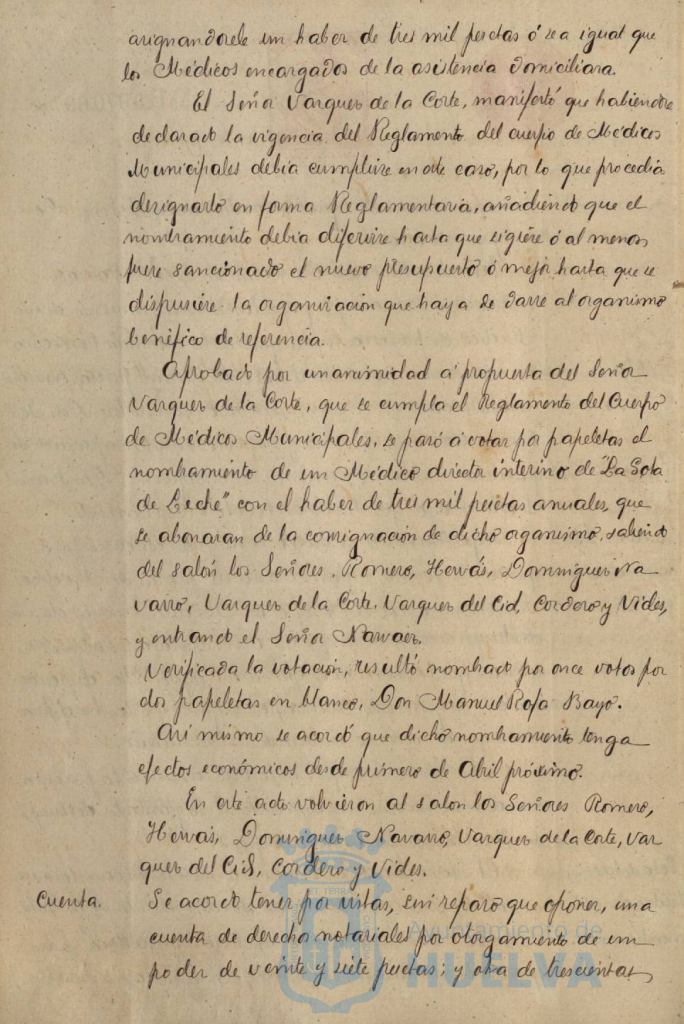 asignandosele un haber de tres mil pesetas ó sea igual que
los Médicos encargados de la asistencia domiciliara.
El Señor Vazquez de la Corte, manifestó que habiendose
declarado la vigencia del Reglamento del cuerpo de Médicos
Municipales debia cumplirse en este caso, por lo que procedia
designarlo en forma Reglamentaria, añadiendo que el
nombramiento debia diferirse hasta que rigiere ó al menos
fuere sancionado el nuevo presupuesto ó mejor hasta que se
dispusiere la organización que haya de darse al organismo
benéfico de referencia.
Aprobado por unanimidad a propuesta del Señor
Vazquez de la Corte, que se cumpla el Reglamento del Cuerpo
de Médicos Municipales, se pasó á votar por papeletas el
nombramiento de un Médico director interino de "La Gota
de Leche" con el haber de tres mil pesetas anuales, que
se abonaran de la consignación de dicho organismo, saliendo
del salón los Señores. Romero, Hervás, Dominguez Na
varro, Vazquez de la Corte. Vazquez del Cid, Cordero y Vides,
y entrando el Señor Narvaez.
Verificada la votación, resultó nombrado por once votos por
dos papeletas en blanco, Don Manuel Rofa Bayo.
Asi mismo se acordó que dicho nombramiento tenga
efectos económicos desde primero de Abril próximo.
En este acto volvieron al salon los Señores Romero,
Hervás, Dominguez Navarro, Vazquez de la Corte, Vaz
quez del Cid, Cordero y Vides.
Cuenta. Se acordó tener por vistas, sin reparo que oponer, una
cuenta de derechos notariales por otorgamiento de un
poder de veinte y siete pesetas; y otra de trescientas
Ayuntamiento de
HUELVA